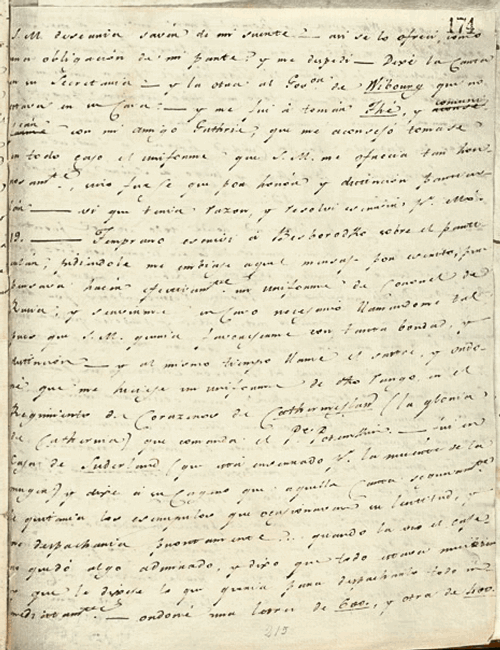 174
S. M. deseava savèr de mi suerte — asi se lo ofreci como
una obligación de mi parte? y me despedi — Dexé la Carta
en su Secretaria — y la otra al Govor de Wibourg que no
estava en su Casa — y me fui á tomàr Thé, y
con mi amigo Guthrie? que me aconsejò tomase
en todo caso el uniforme que S. M. me ofrecia tan hon-
rosamte? sino fuese que por honòr y distincion particu-
làr — vi que tenia razon, y resolvi escrivir pa.
19. — Temprano escrivi á Besborodko sobre el parti-
culàr, pidiendole me embiase aquel mensaje por escrito, pues
pensava hacer efectivamte un uniforme de Coronel de
Rusia, y servirme en Caso necesario llamandome tal
pues que S. M. queria favorecerme con tanta bondad, y
distincion — y al mismo tiempo llamè el sastre, y orde-
nè que me hiciese un uniforme de dho rango, en el
Regimiento de Corazeros de Catherinoslaw (la gloria
de Catherina) que comanda el Pe. Potemkin. — fui en
Casa de Suderland (que está encerrado pr. la muerte de la
muger) y dixe á su Cagero que aquella Carta seguramte
le quitaria los escrupulos que ocasionavan su lentitud, y
me despacharia prontamente... quando la vió el caje-
ro quedó algo admirado, y dixo que todo estava
y que le dixese lo que queria para despacharlo todo in-
mediatamte — ordené una letra de 600, y otra de 400.
215